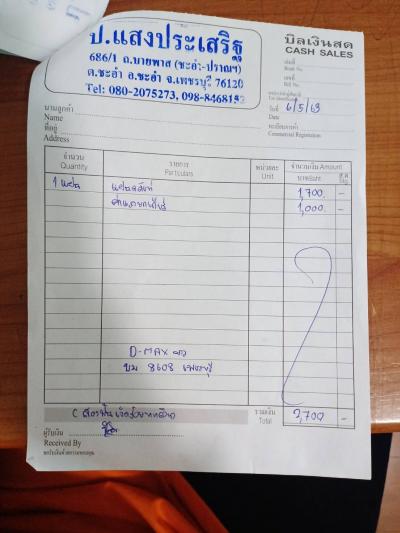 ป.แสงประเสริฐ
686/1 ถ.บายพาส (ชะอำ-ปราณฯ)
ต.ชะอำ อ.ชะอำ จ.เพชรบุรี 76120
Tel: 080-2075273, 098-8468182
บิลเงินสด
CASH SALES
เล่มที่
Book No.
เลขที่
Bill No.
วันที่ 6/5/69
Date
ทะเบียนการค้า
Commercial Registration
นามลูกค้า
Name
ที่อยู่
Address
จำนวน รายการ หน่วยละ จำนวนเงิน Amount
Quantity Particulars Unit บาท/Baht
1,700 -
1,000 -
D-MAX
บม 8608 เพชรบุรี
รวมเงิน 2,700 -
Total
ผู้รับเงิน
Received By